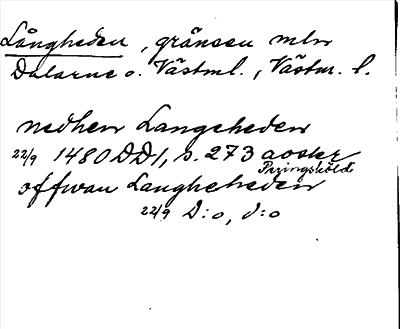 Långheden, gränsen mln
Dalarne o. Västml., Västm. l.
nedhen Langeheden
22/9 1480 DD1, s. 273 avskr
Peringskiöld
offwan Langheheden
22/9 D:o, d:o